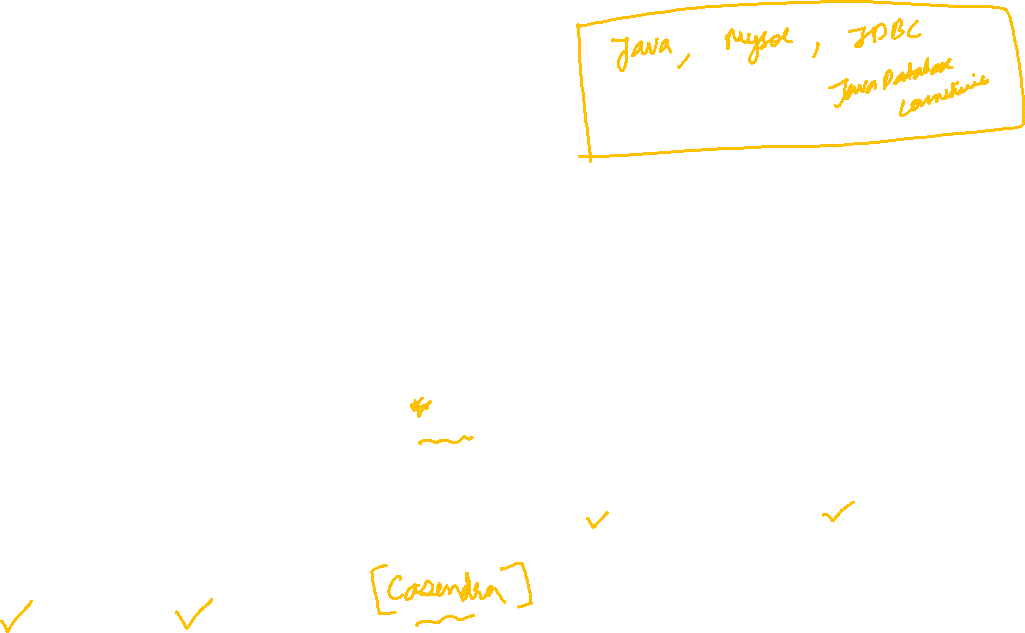 Java, Mysql, JDBC
Java Database
Connectivity
[Casendra]